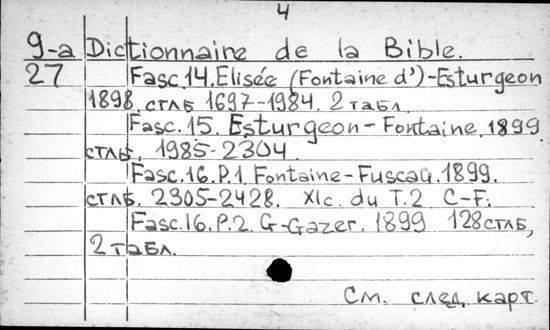 4
9-a Dictionnaire de la Bible.
27 Fasc.14. Elisée (Fontaine d')-Esturgeon
1898. стлб 1697-1984. 2 табл.
Fasc.15. Esturgeon-Fontaine. 1899
стлб. 1985-2304.
Fasc.16.P.1. Fontaine-Fuscau. 1899.
стлб. 2305-2428. XIc. du T.2 C-F.
Fasc.16.P.2. G-Gazer. 1899 128 стлб,
2 табл.
См. след. карт.